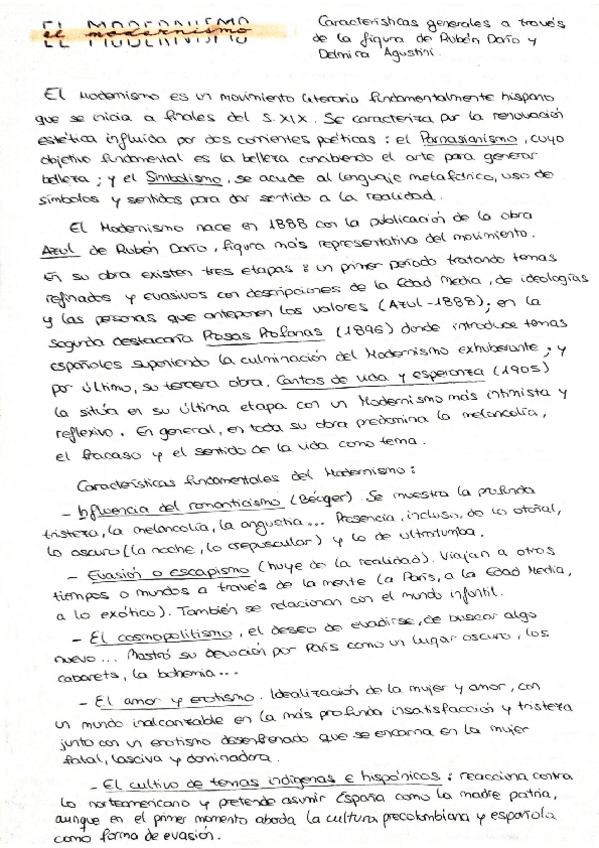 EL MODERNISMO
el modernismo
Características generales a través
de la figura de Rubén Darío y
Delmira Agustini.
El Modernismo es un movimiento literario fundamentalmente hispano
que se inicia a finales del S.XIX. Se caracteriza por la renovación
estética influída por dos corrientes poéticas: el Parnasianismo, cuyo
objetivo fundamental es la belleza concibiendo el arte para generar
belleza; y el Simbolismo, se acude al lenguaje metafórico, uso de
símbolos y sentidos para dar sentido a la realidad.
El Modernismo nace en 1888 con la publicación de la obra
Azul de Rubén Darío, figura más representativa del movimiento.
En su obra existen tres etapas: un primer período tratando temas
refinados y evasivos con descripciones de la Edad Media, de ideologías
y las personas que anteponen los valores (Azul-1888); en la
segunda destacaría Prosas Profanas (1896) donde introduce temas
españoles suponiendo la culminación del Modernismo exhuberante; y
por último, su tercera obra, Cantos de vida y esperanza (1905)
la sitúa en su última etapa con un Modernismo más intimista y
reflexivo. En general, en toda su obra predomina la melancolía,
el fracaso y el sentido de la vida como tema.
Características fundamentales del Modernismo:
- Influencia del romanticismo (Bécquer). Se muestra la profunda
tristeza, la melancolía, la angustia... Presencia, incluso, de lo otoñal,
lo oscuro (la noche, lo crepuscular) y lo de ultratumba.
- Evasión o escapismo (huye de la realidad). Viajan a otros
tiempos o mundos a través de la mente (a París, a la Edad Media,
a lo exótico). También se relacionan con el mundo infantil.
- El cosmopolitismo, el deseo de evadirse, de buscar algo
nuevo... Mostró su devoción por París como un lugar oscuro, los
cabarets, la bohemia...
- El amor y erotismo. Idealización de la mujer y amor, con
un mundo inalcanzable en la más profunda insatisfacción y tristeza
junto con un erotismo desenfrenado que se encarna en la mujer
fatal, lasciva y dominadora.
- El cultivo de temas indígenas e hispánicos: reacciona contra
lo norteamericano y pretende asumir España como la madre patria,
aunque en el primer momento aborda la cultura precolombiana y española
como forma de evasión.